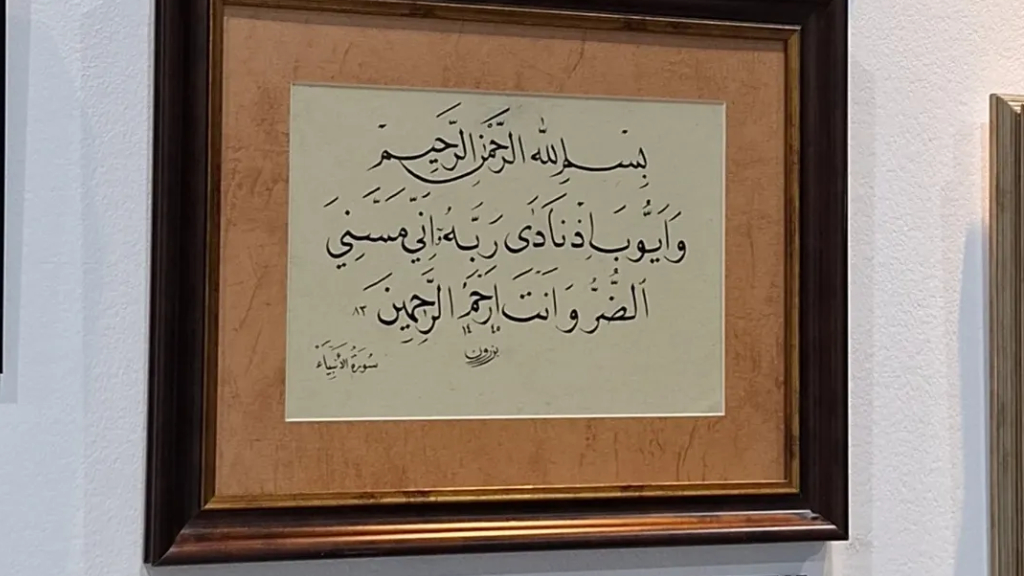 بِسْمِ اللهِ الرَّحْمٰنِ الرَّحِيمِ
وَاَيُّوبَ اِذْ نَادَى رَبَّهُ اَنِّي مَسَّنِيَ
الضُّرُّ وَاَنْتَ اَرْحَمُ الرَّاحِمِينَ ٨٣
١٤ ٤٥
سُورَةُ الْأَنْبِيَاءِ